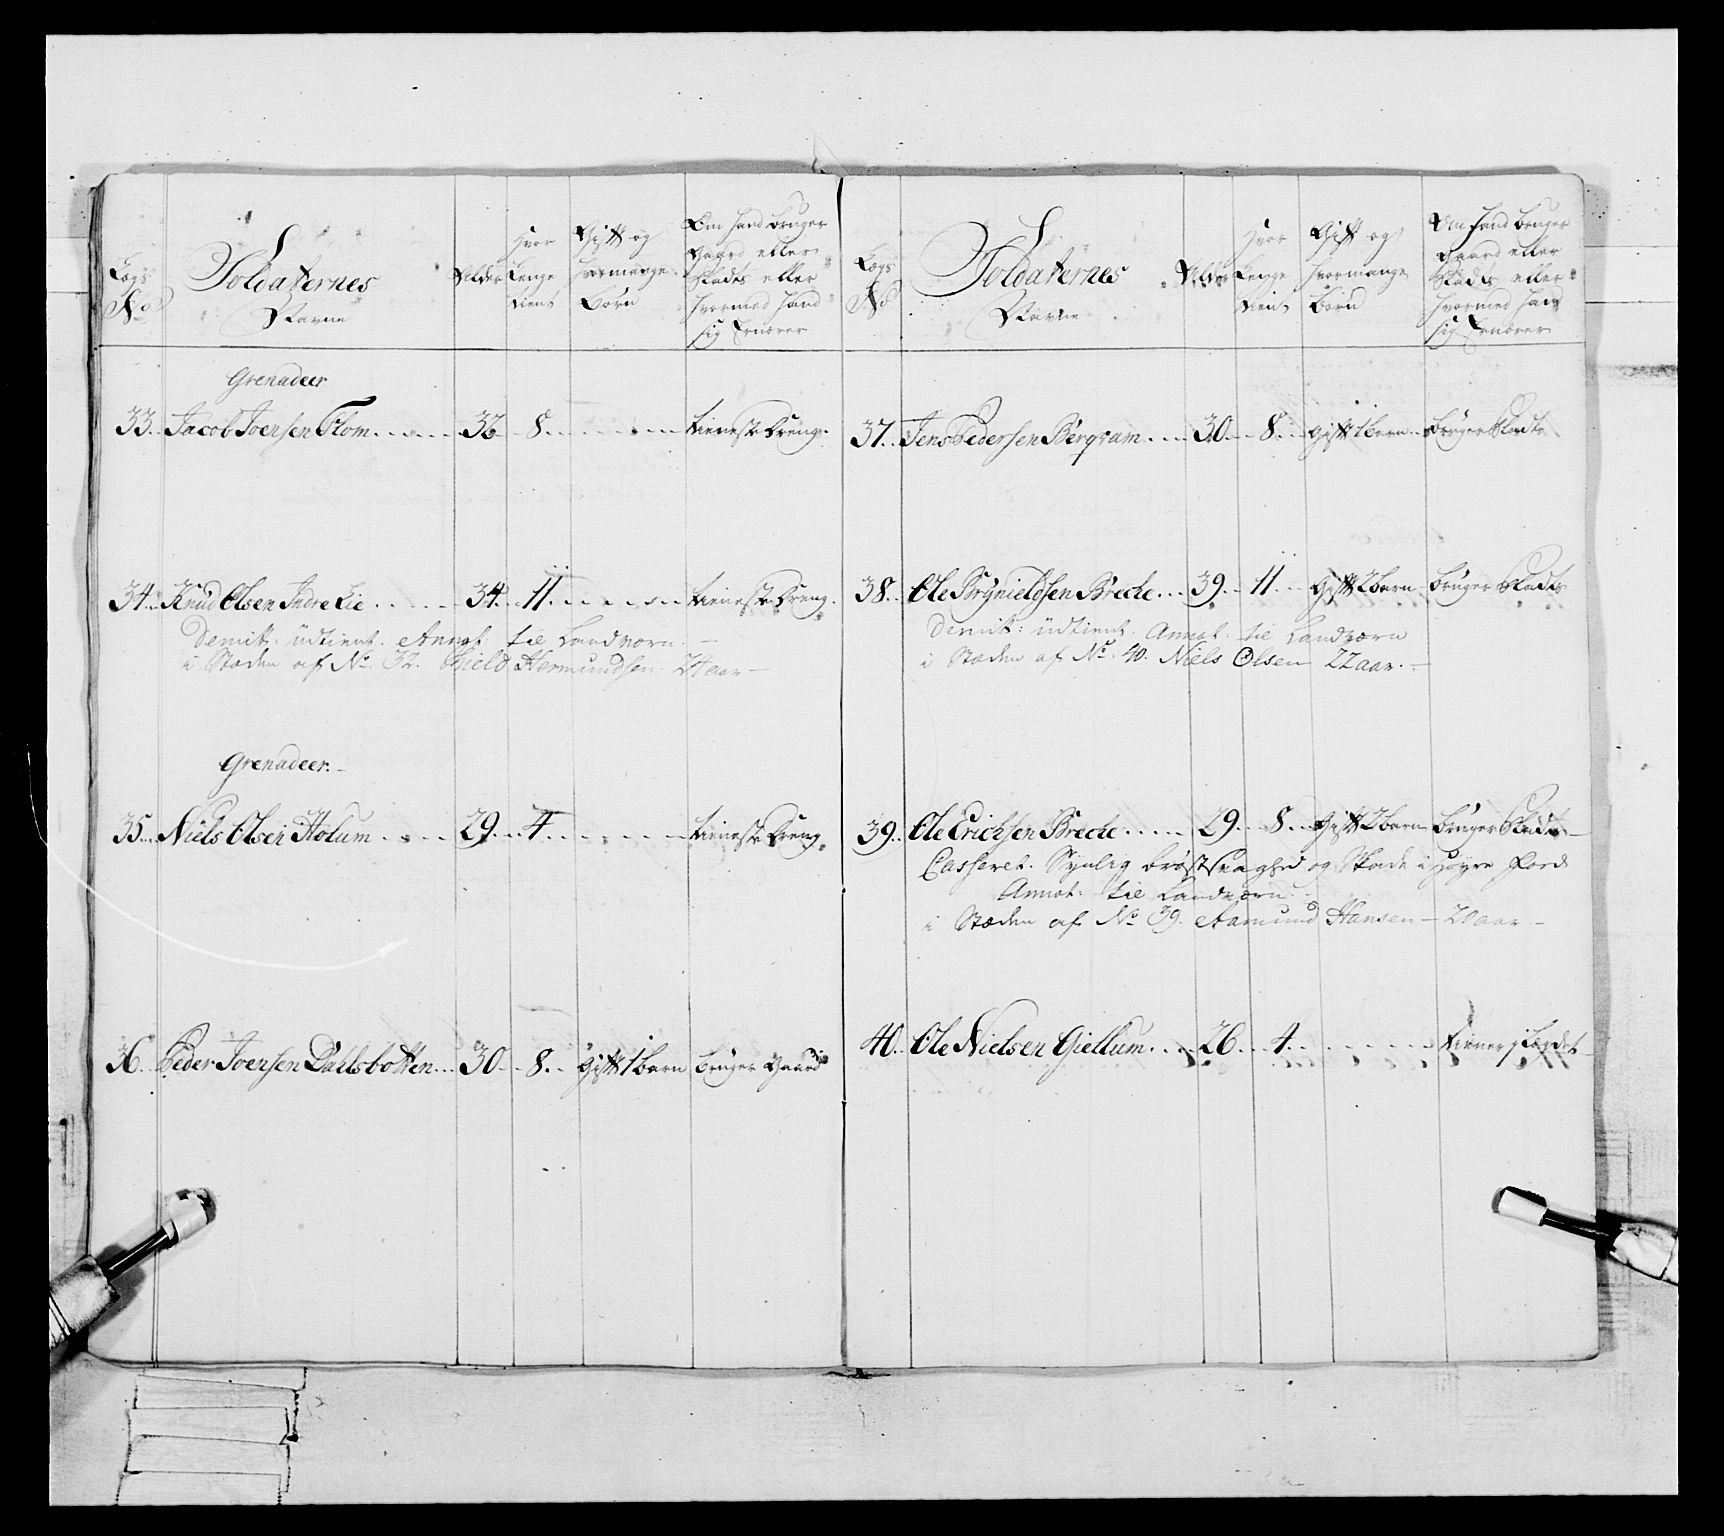 Lægs No
Soldaternes Navne
Alder
Hvor Lenge tient
Gift og hvormange Børn
Om hand bruger Gaard eller Pladts eller hvormed hand sig Ernærer
Grenadeer
33. Jacob Joensen Flom 36 8 tieneste Dreng
34. Knud Olsen Indre Lie 34 11 tieneste Dreng
Demitt: udtient. Annot. til Landværn
i Stæden af No. 32. Kield Hermundsen 24 aar
Grenadeer
35. Niels Olsen Holum 29 4 tieneste Dreng
36. Peder Joensen Dahlsbotten 30 8 Gift 1 barn bruger Gaard
Lægs No
Soldaternes Navne
Alder
Hvor Lenge tient
Gift og hvormange børn
Om hand bruger Gaard eller Pladts eller hvormed hand sig Ernærer
37. Jens Pedersen Bergram 30 8 gift 1 barn bruger Pladts
38. Ole Brynieldsen Breche 39 11 Gift 2 barn bruger Pladts
Demitt: udtient. Annot. til Landværn
i Stæden af No. 40. Niels Olsen 22 aar.
39. Ole Erichsen Breche 29 8 Gift 2 barn bruger Pladts
Casseret. Synlig brøstsvaghed og Skade i høyre
Annot: til Landværn
i Stæden af No 39. Aamund Hansen 20 aar
40. Ole Nielsen Giellum 26 4 tiener i Lægdet